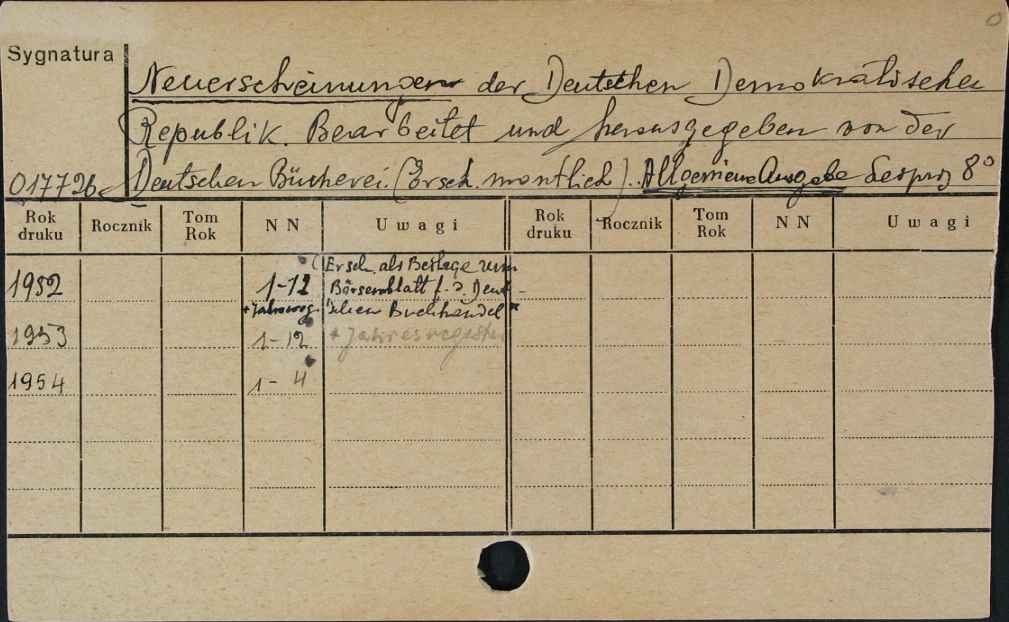 0
Sygnatura
Neuerscheinungen der Deutschen Demokratischen
Republik. Bearbeitet und herausgegeben von der
017726 Deutschen Bücherei. (Ersch. montlich). Allgemeine Ausgabe 8°
Rok druku Rocznik Tom Rok NN Uwagi Rok druku Rocznik Tom Rok NN Uwagi
1952 1-12 (Ersch. als Beilage zum
Börsenblatt f. d. Deut-
schen Buchhandel"
1953 1-12 + Jahresregister
1954 1-4